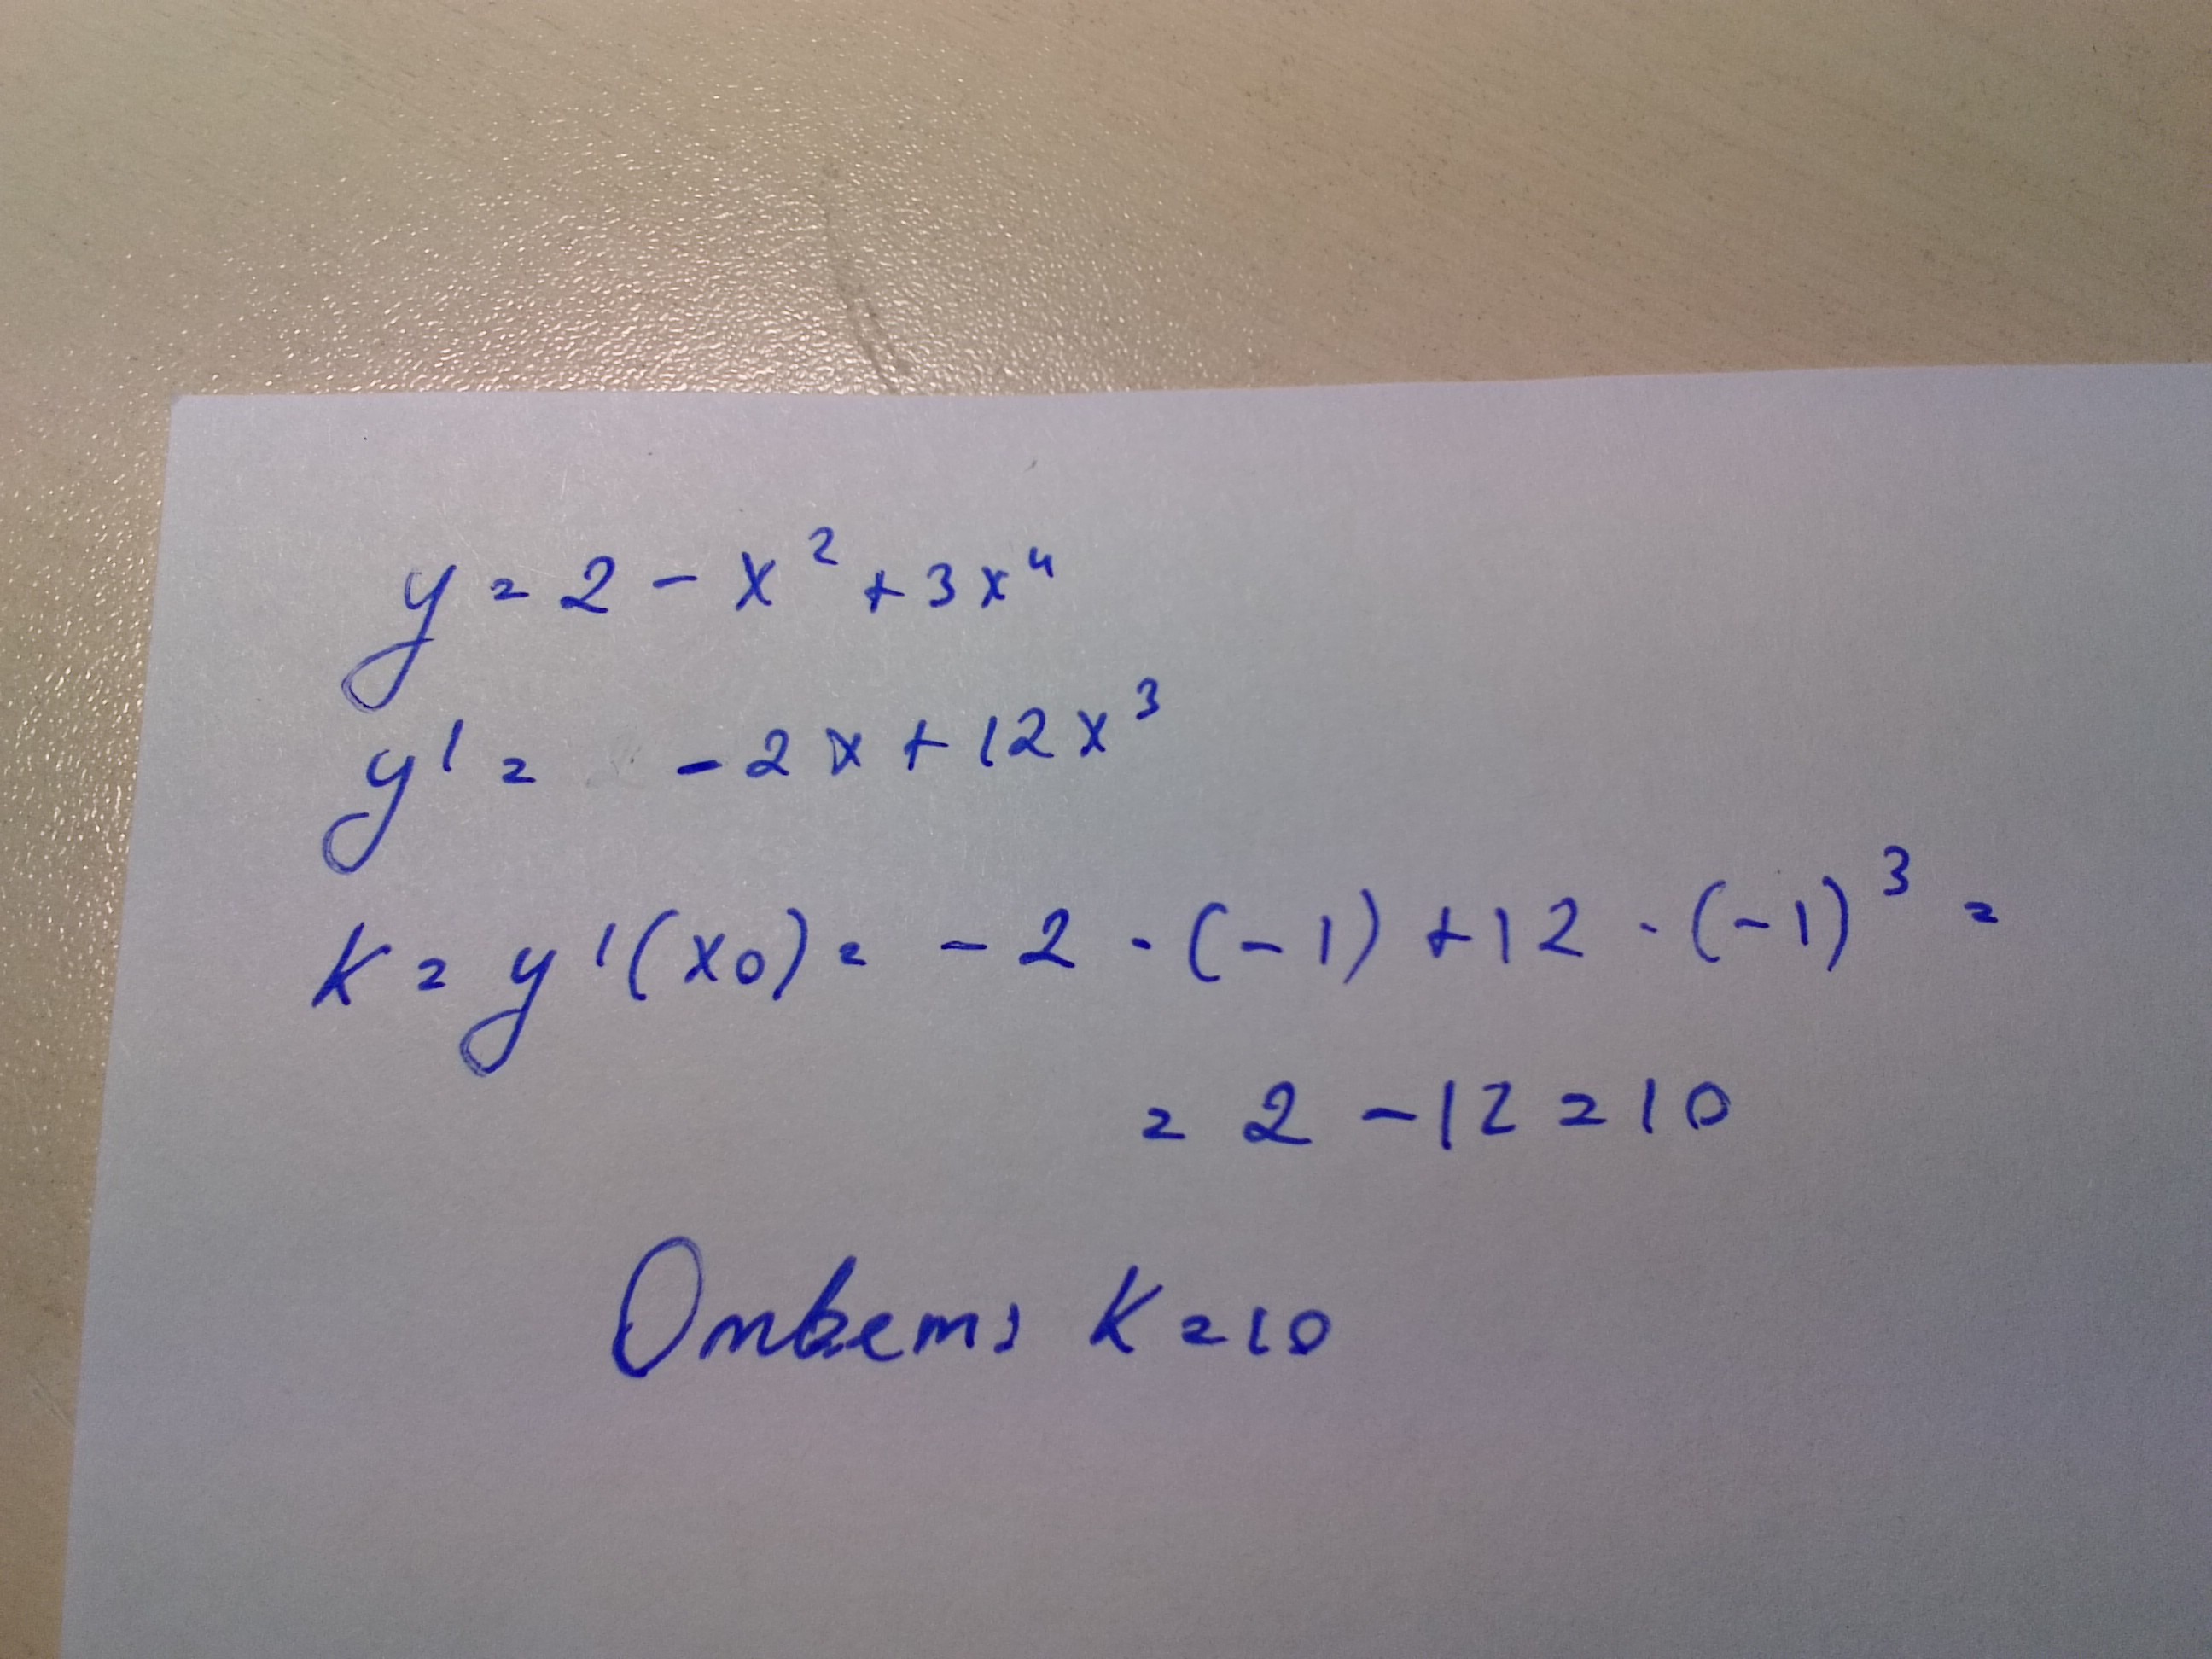 y = 2 - x² + 3x⁴
y' = -2x + 12x³
k = y'(x0) = -2 · (-1) + 12 · (-1)³ =
= 2 - 12 = 10
Ответ: k = 10